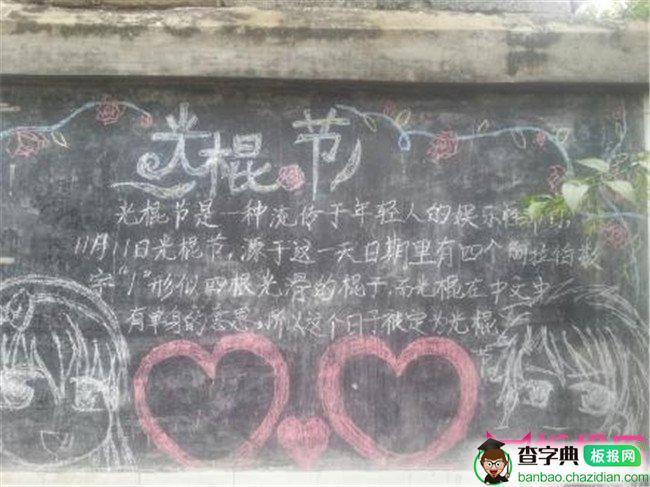 光棍节
光棍节是一种流传于年轻人的娱乐性节日,
11月11日光棍节,源于这一天日期里有四个阿拉伯数
字“1”形似四根光滑的棍子,而光棍在中文中
有单身的意思,所以这个日子被定为光棍
查字典 板报网
banbao.chazidian.com